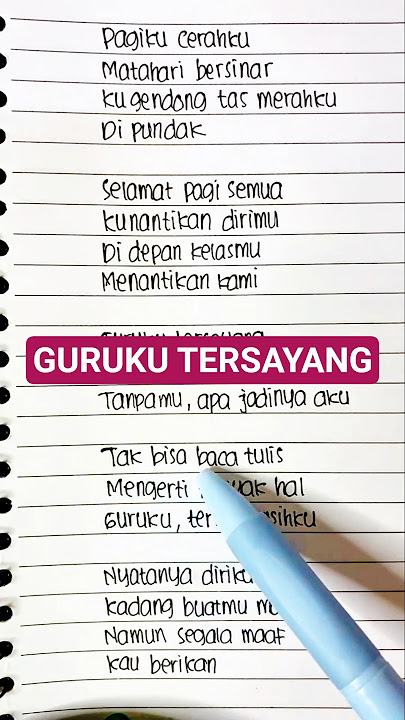 Pagiku cerahku
Matahari bersinar
Kugendong tas merahku
Di pundak
Selamat pagi semua
Kunantikan dirimu
Di depan kelasmu
Menantikan kami
GURUKU TERSAYANG
Tanpamu, apa jadinya aku
Tak bisa baca tulis
Mengerti hal
Guruku,
Nyatanya
Kadang buatmu
Namun segala maaf
Kau berikan